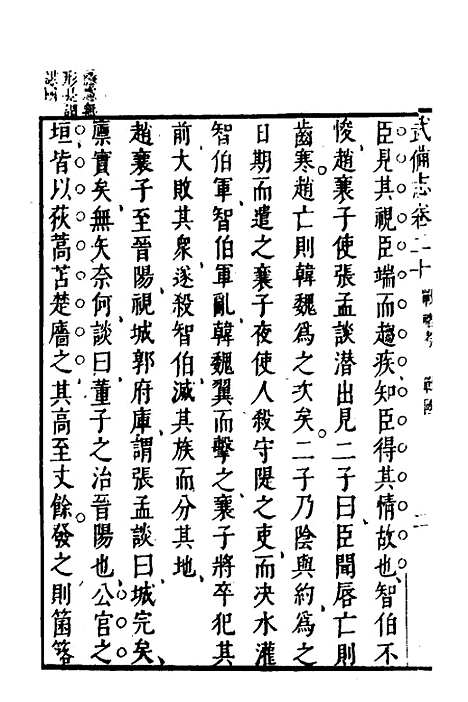 武備志卷二十
臣見其視臣端而趨疾知臣得其情故也智伯不
悛趙襄子使張孟談潛出見二子曰臣聞唇亡則
齒寒趙亡則韓魏為之次矣二子乃陰與約為之
日期而遣之襄子夜使人殺守隄之吏而决水灌
智伯軍智伯軍亂韓魏翼而擊之襄子將卒犯其
前大敗其衆遂殺智伯滅其族而分其地
趙襄子至晉陽視城郭府庫謂張孟談曰城完矣
廪實矣無矢奈何談曰董子之治晉陽也公宮之
垣皆以荻蒿苫楚廧之其高至丈餘發之則箘簬